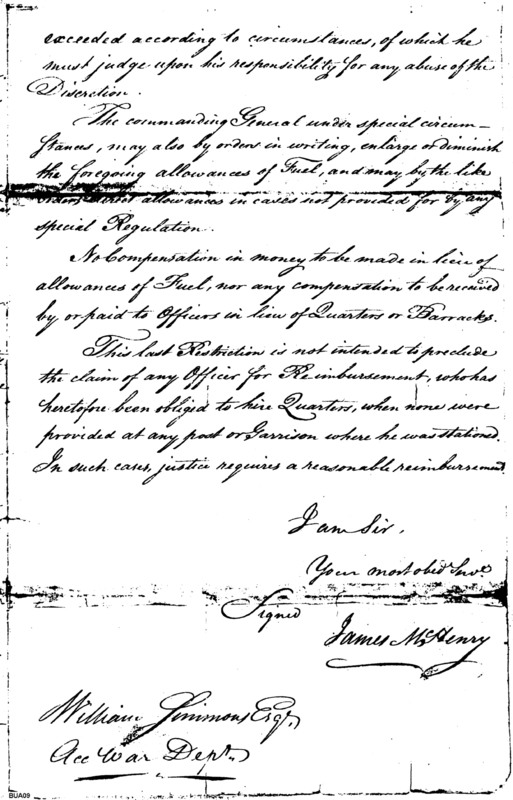 exceeded according to circumstances, of which he
must judge upon his responsibility for any abuse of the
Discretion.
The commanding General under special circum-
stances, may also by orders in writing, enlarge or diminish
the foregoing allowances of Fuel, and may by the like
allowances in cases not provided for by any
special Regulation.
No Compensation in money to be made in lieu of
allowances of Fuel, nor any compensation to be received
by or paid to Officers in lieu of Quarters or Barracks.
This last Restriction is not intended to preclude
the claim of any Officer for Reimbursement, who has
heretofore been obliged to hire Quarters, when none were
provided at any post or Garrison where he was stationed.
In such cases, justice requires a reasonable reimbursement
I am Sir,
Your most obedt Servt
Signed
James McHenry
William Simmons Esqr.
Acc War Dept.
BUA09